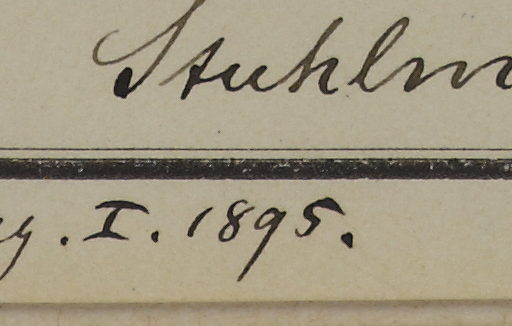 Stuhlm
y. I. 1895.